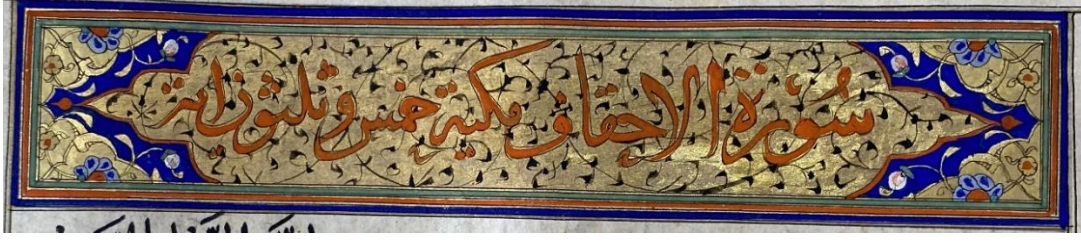 سُورة الاحقاف مكية خمس وثلثون اية